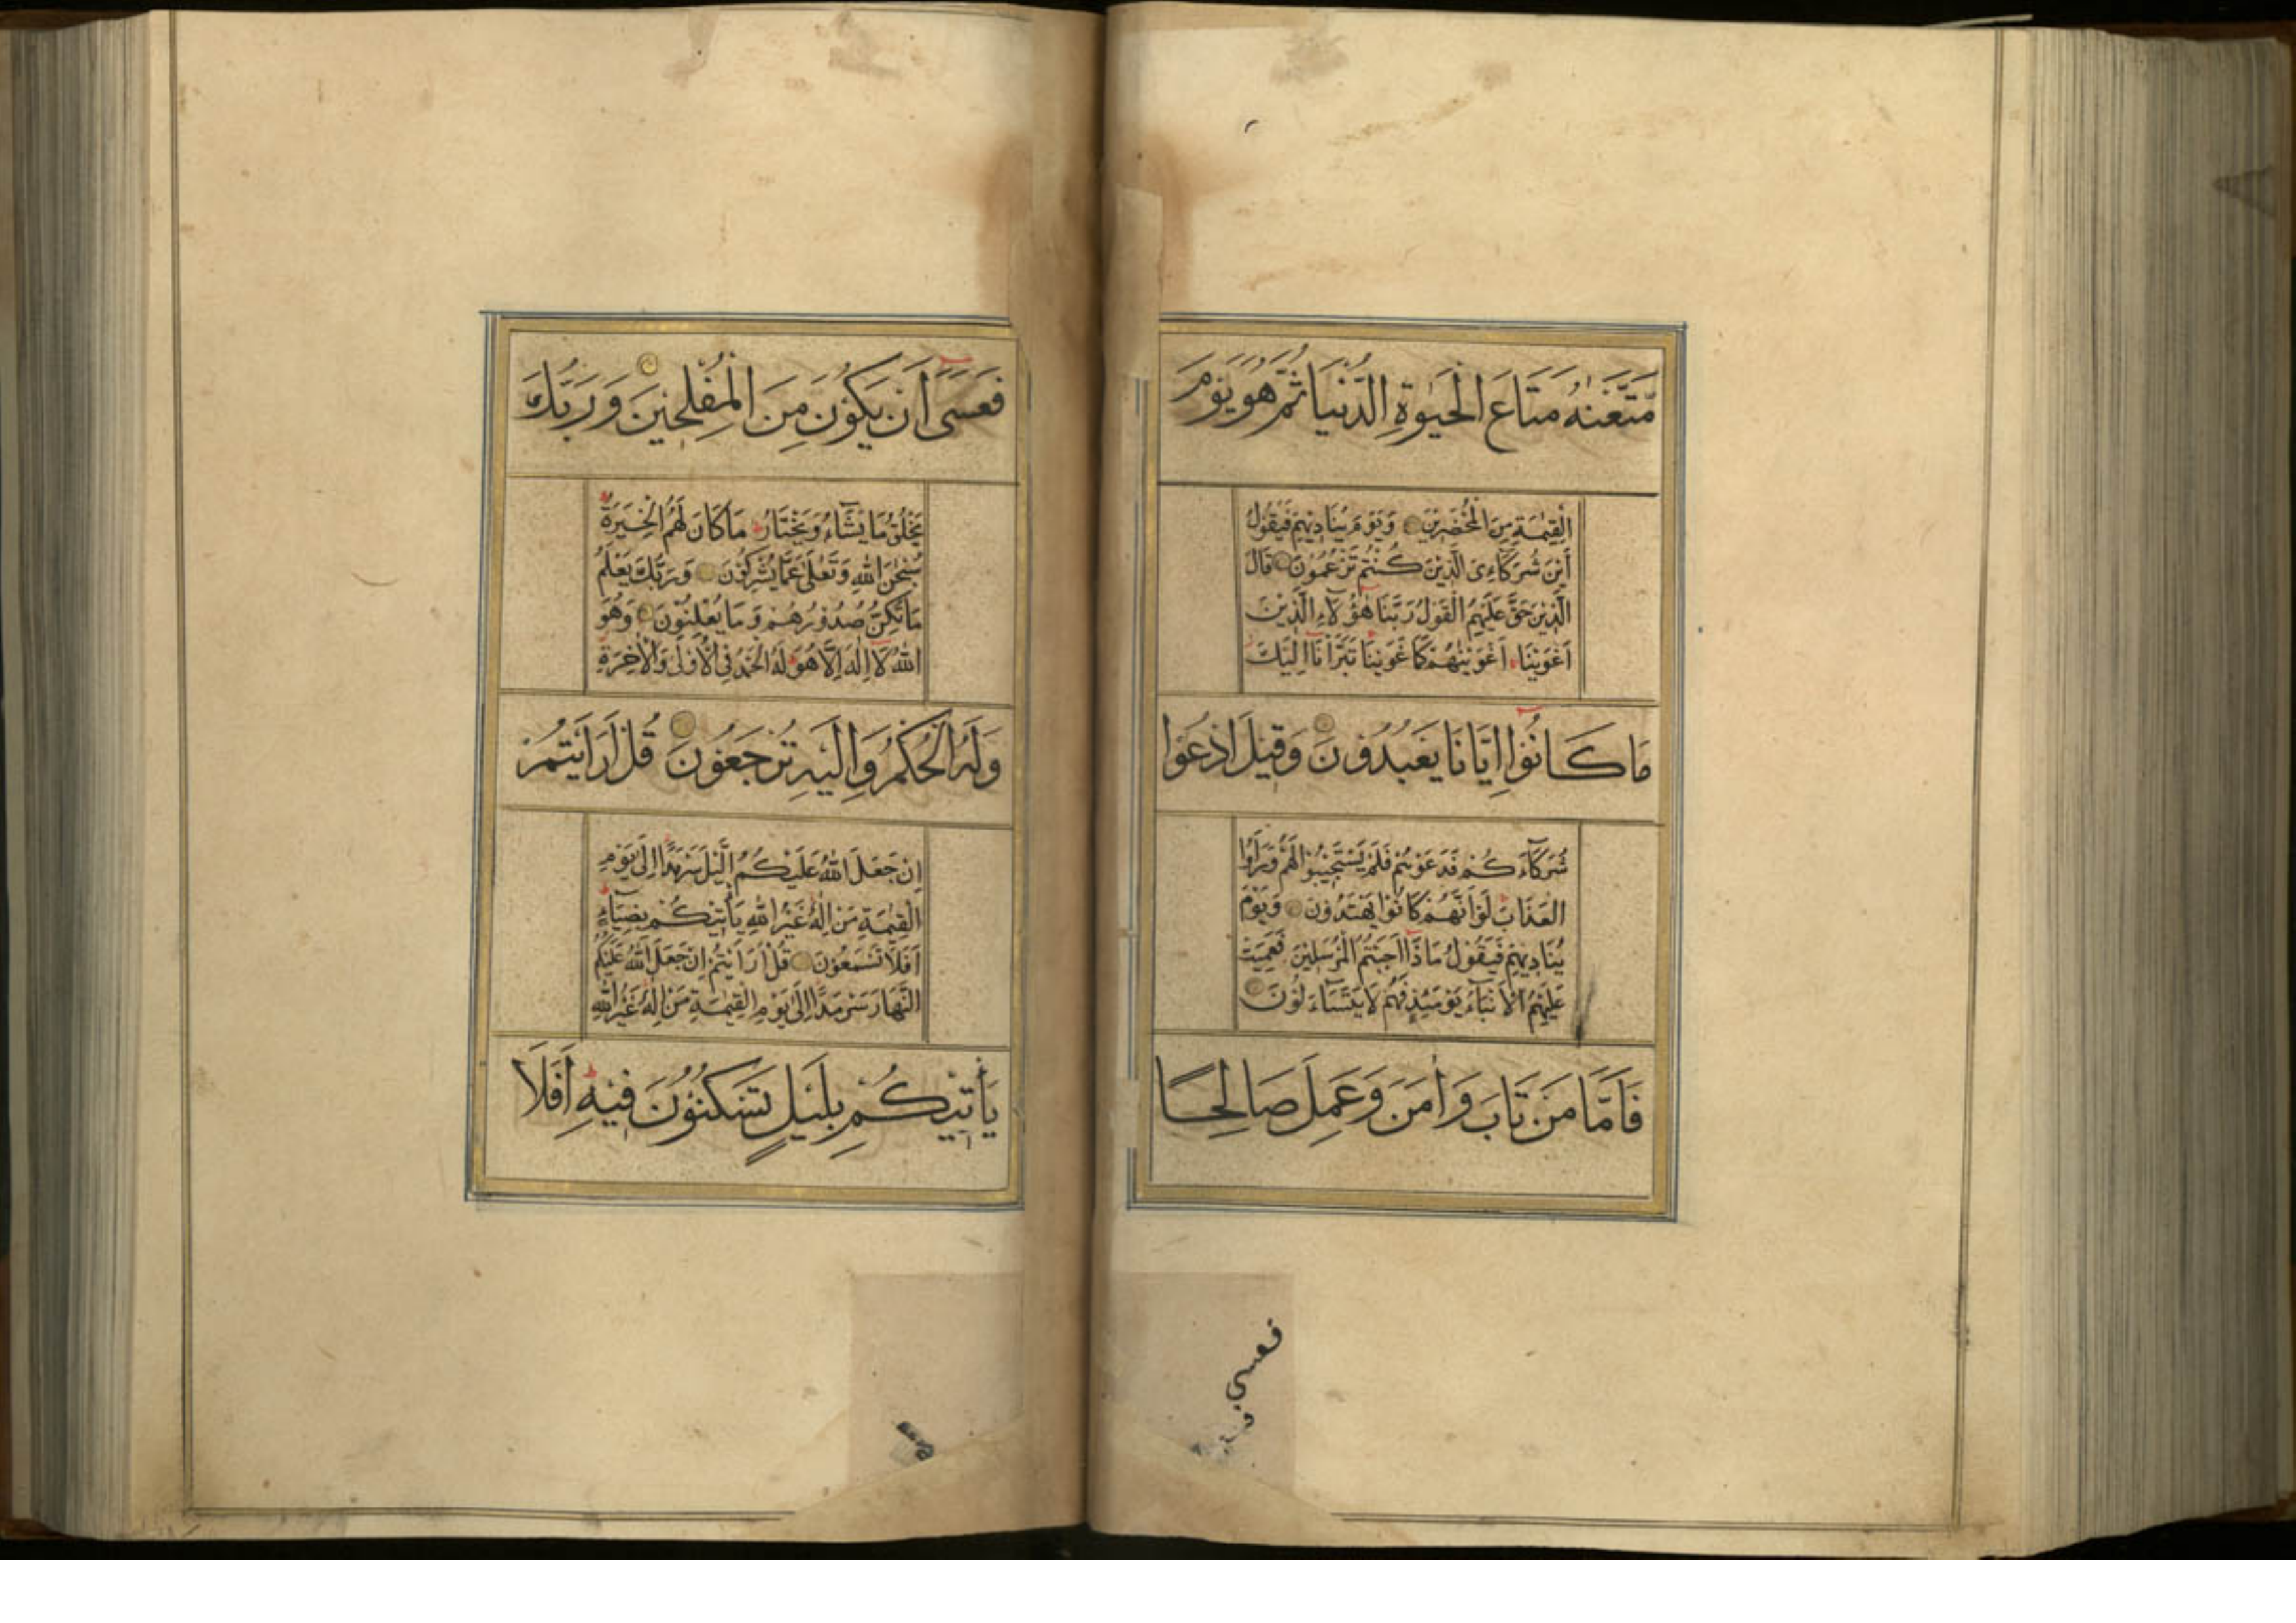 مَتَّعْنٰهُ مَتَاعَ الْحَيٰوةِ الدُّنْيَا ثُمَّ هُوَ يَوْمَ
الْقِيٰمَةِ مِنَ الْمُحْضَرِيْنَ وَيَوْمَ يُنَادِيْهِمْ فَيَقُوْلُ
أَيْنَ شُرَكَاءِىَ الَّذِيْنَ كُنْتُمْ تَزْعُمُوْنَ قَالَ
الَّذِيْنَ حَقَّ عَلَيْهِمُ الْقَوْلُ رَبَّنَا هٰؤُلَاءِ الَّذِيْنَ
اَغْوَيْنَا اَغْوَيْنٰهُمْ كَمَا غَوَيْنَا تَبَرَّأْنَا اِلَيْكَ
مَا كَانُوْا اِيَّانَا يَعْبُدُوْنَ وَقِيْلَ ادْعُوْا
شُرَكَآءَكُمْ فَدَعَوْهُمْ فَلَمْ يَسْتَجِيْبُوْا لَهُمْ وَرَاَوُا
الْعَذَابَ لَوْ اَنَّهُمْ كَانُوْا يَهْتَدُوْنَ وَيَوْمَ
يُنَادِيْهِمْ فَيَقُوْلُ مَاذَا اَجَبْتُمُ الْمُرْسَلِيْنَ فَعَمِيَتْ
عَلَيْهِمُ الْاَنْبَآءُ يَوْمَئِذٍ فَهُمْ لَا يَتَسَآءَلُوْنَ
فَاَمَّا مَنْ تَابَ وَاٰمَنَ وَعَمِلَ صَالِحًا
فعسى
فَعَسٰى اَنْ يَكُوْنَ مِنَ الْمُفْلِحِيْنَ وَرَبُّكَ
يَخْلُقُ مَا يَشَآءُ وَيَخْتَارُ مَا كَانَ لَهُمُ الْخِيَرَةُ
سُبْحٰنَ اللهِ وَتَعٰلٰى عَمَّا يُشْرِكُوْنَ وَرَبُّكَ يَعْلَمُ
مَا تُكِنُّ صُدُوْرُهُمْ وَمَا يُعْلِنُوْنَ وَهُوَ
اللهُ لَا اِلٰهَ اِلَّا هُوَ لَهُ الْحَمْدُ فِى الْاُوْلٰى وَالْاٰخِرَةِ
وَلَهُ الْحُكْمُ وَاِلَيْهِ تُرْجَعُوْنَ قُلْ اَرَاَيْتُمْ
اِنْ جَعَلَ اللهُ عَلَيْكُمُ الَّيْلَ سَرْمَدًا اِلٰى يَوْمِ
الْقِيٰمَةِ مَنْ اِلٰهٌ غَيْرُ اللهِ يَأْتِيْكُمْ بِضِيَآءٍ
اَفَلَا تَسْمَعُوْنَ قُلْ اَرَاَيْتُمْ اِنْ جَعَلَ اللهُ عَلَيْكُمُ
النَّهَارَ سَرْمَدًا اِلٰى يَوْمِ الْقِيٰمَةِ مَنْ اِلٰهٌ غَيْرُ اللهِ
يَأْتِيْكُمْ بِلَيْلٍ تَسْكُنُوْنَ فِيْهِ اَفَلَا